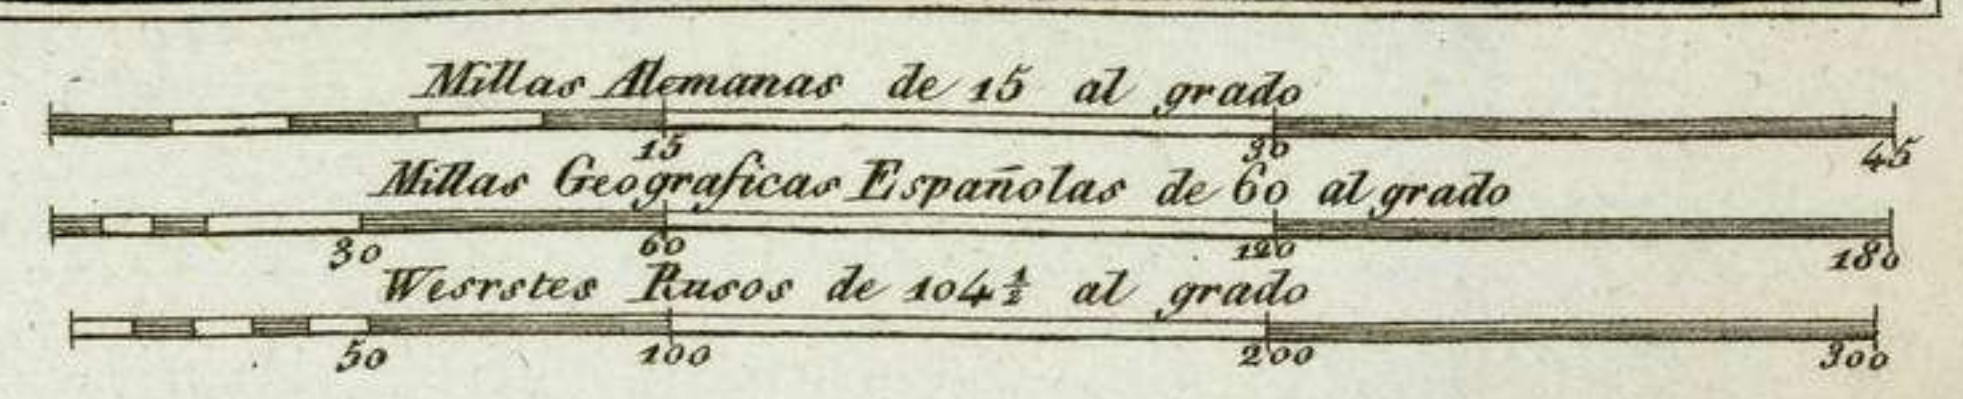 Millas Alemanas de 15 al grado
15 30 45
Millas Geograficas Españolas de 60 al grado
30 60 120 180
Wesrstes Rusos de 104 1/2 al grado
50 100 200 300